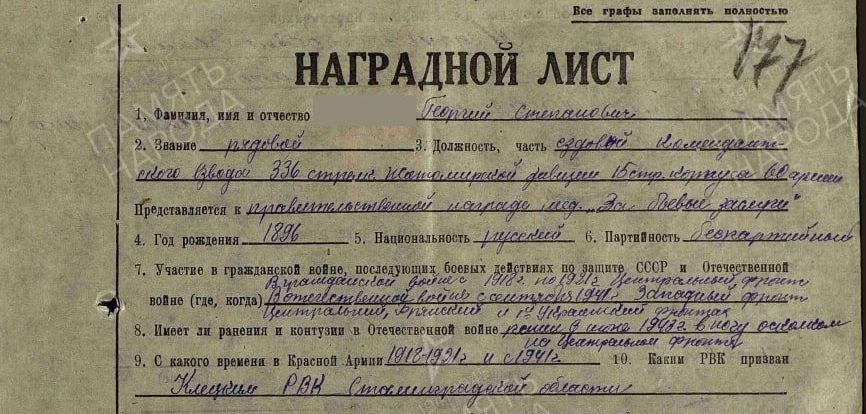 Все графы заполнять полностью
177
НАГРАДНОЙ ЛИСТ
1. Фамилия, имя и отчество Георгий Степанович
2. Звание рядовой 3. Должность, часть ездовой комендант-
ского взвода 336 стрелк. Житомирской дивизии 15 стр. корпуса 60 армии
Представляется к правительственной награде мед. "За боевые заслуги"
4. Год рождения 1896 5. Национальность русский 6. Партийность беспартийный
7. Участие в гражданской войне, последующих боевых действиях по защите СССР и Отечественной
В гражданской войне с 1918 г. по 1921 г. Центральный фронт
войне (где, когда) В отечественной войне с октября 1941 г. Западный фронт
Центральный, Брянский и 1й Украинский фронтах
8. Имеет ли ранения и контузии в Отечественной войне ранен в 1943 г. в ногу осколком
на Центральном фронте
9. С какого времени в Красной Армии 1918-1921 г. и с 1941 г. 10. Каким РВК призван
Клецким РВК Сталинградской области
ПАМЯТЬ НАРОДА
ПАМЯТЬ НАРОДА